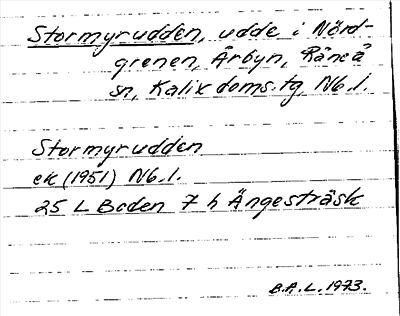 Stormyrudden, udde i Nörd-
grenen, Årbyn, Råneå
sn, Kalix doms.tg Nb.l.
Stormyrudden
ek (1951) Nb.l.
25 L Boden 7 h Ängesträsk
B.A.L. 1973.